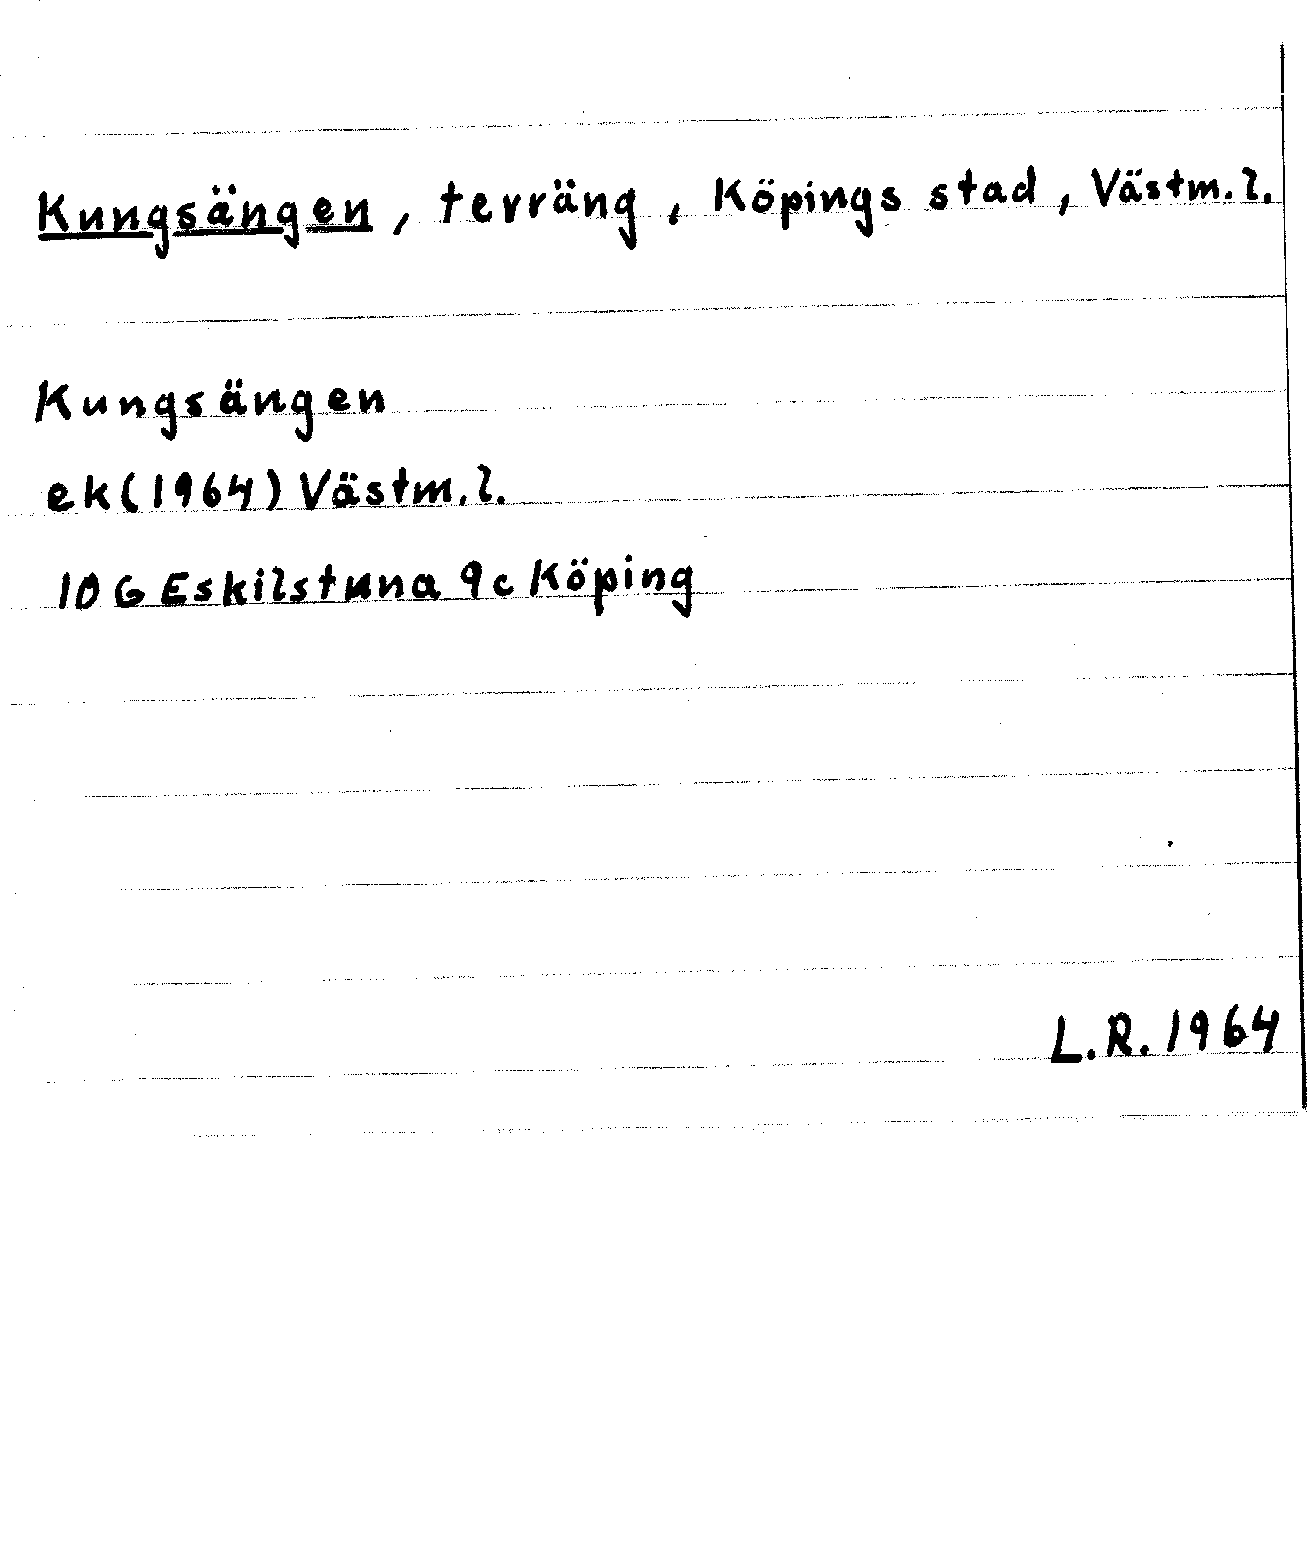 Kungsängen, terräng, Köpings stad, Västm.l.
Kungsängen
ek(1964) Västm.l.
10 G Eskilstuna 9c Köping
L.R. 1964